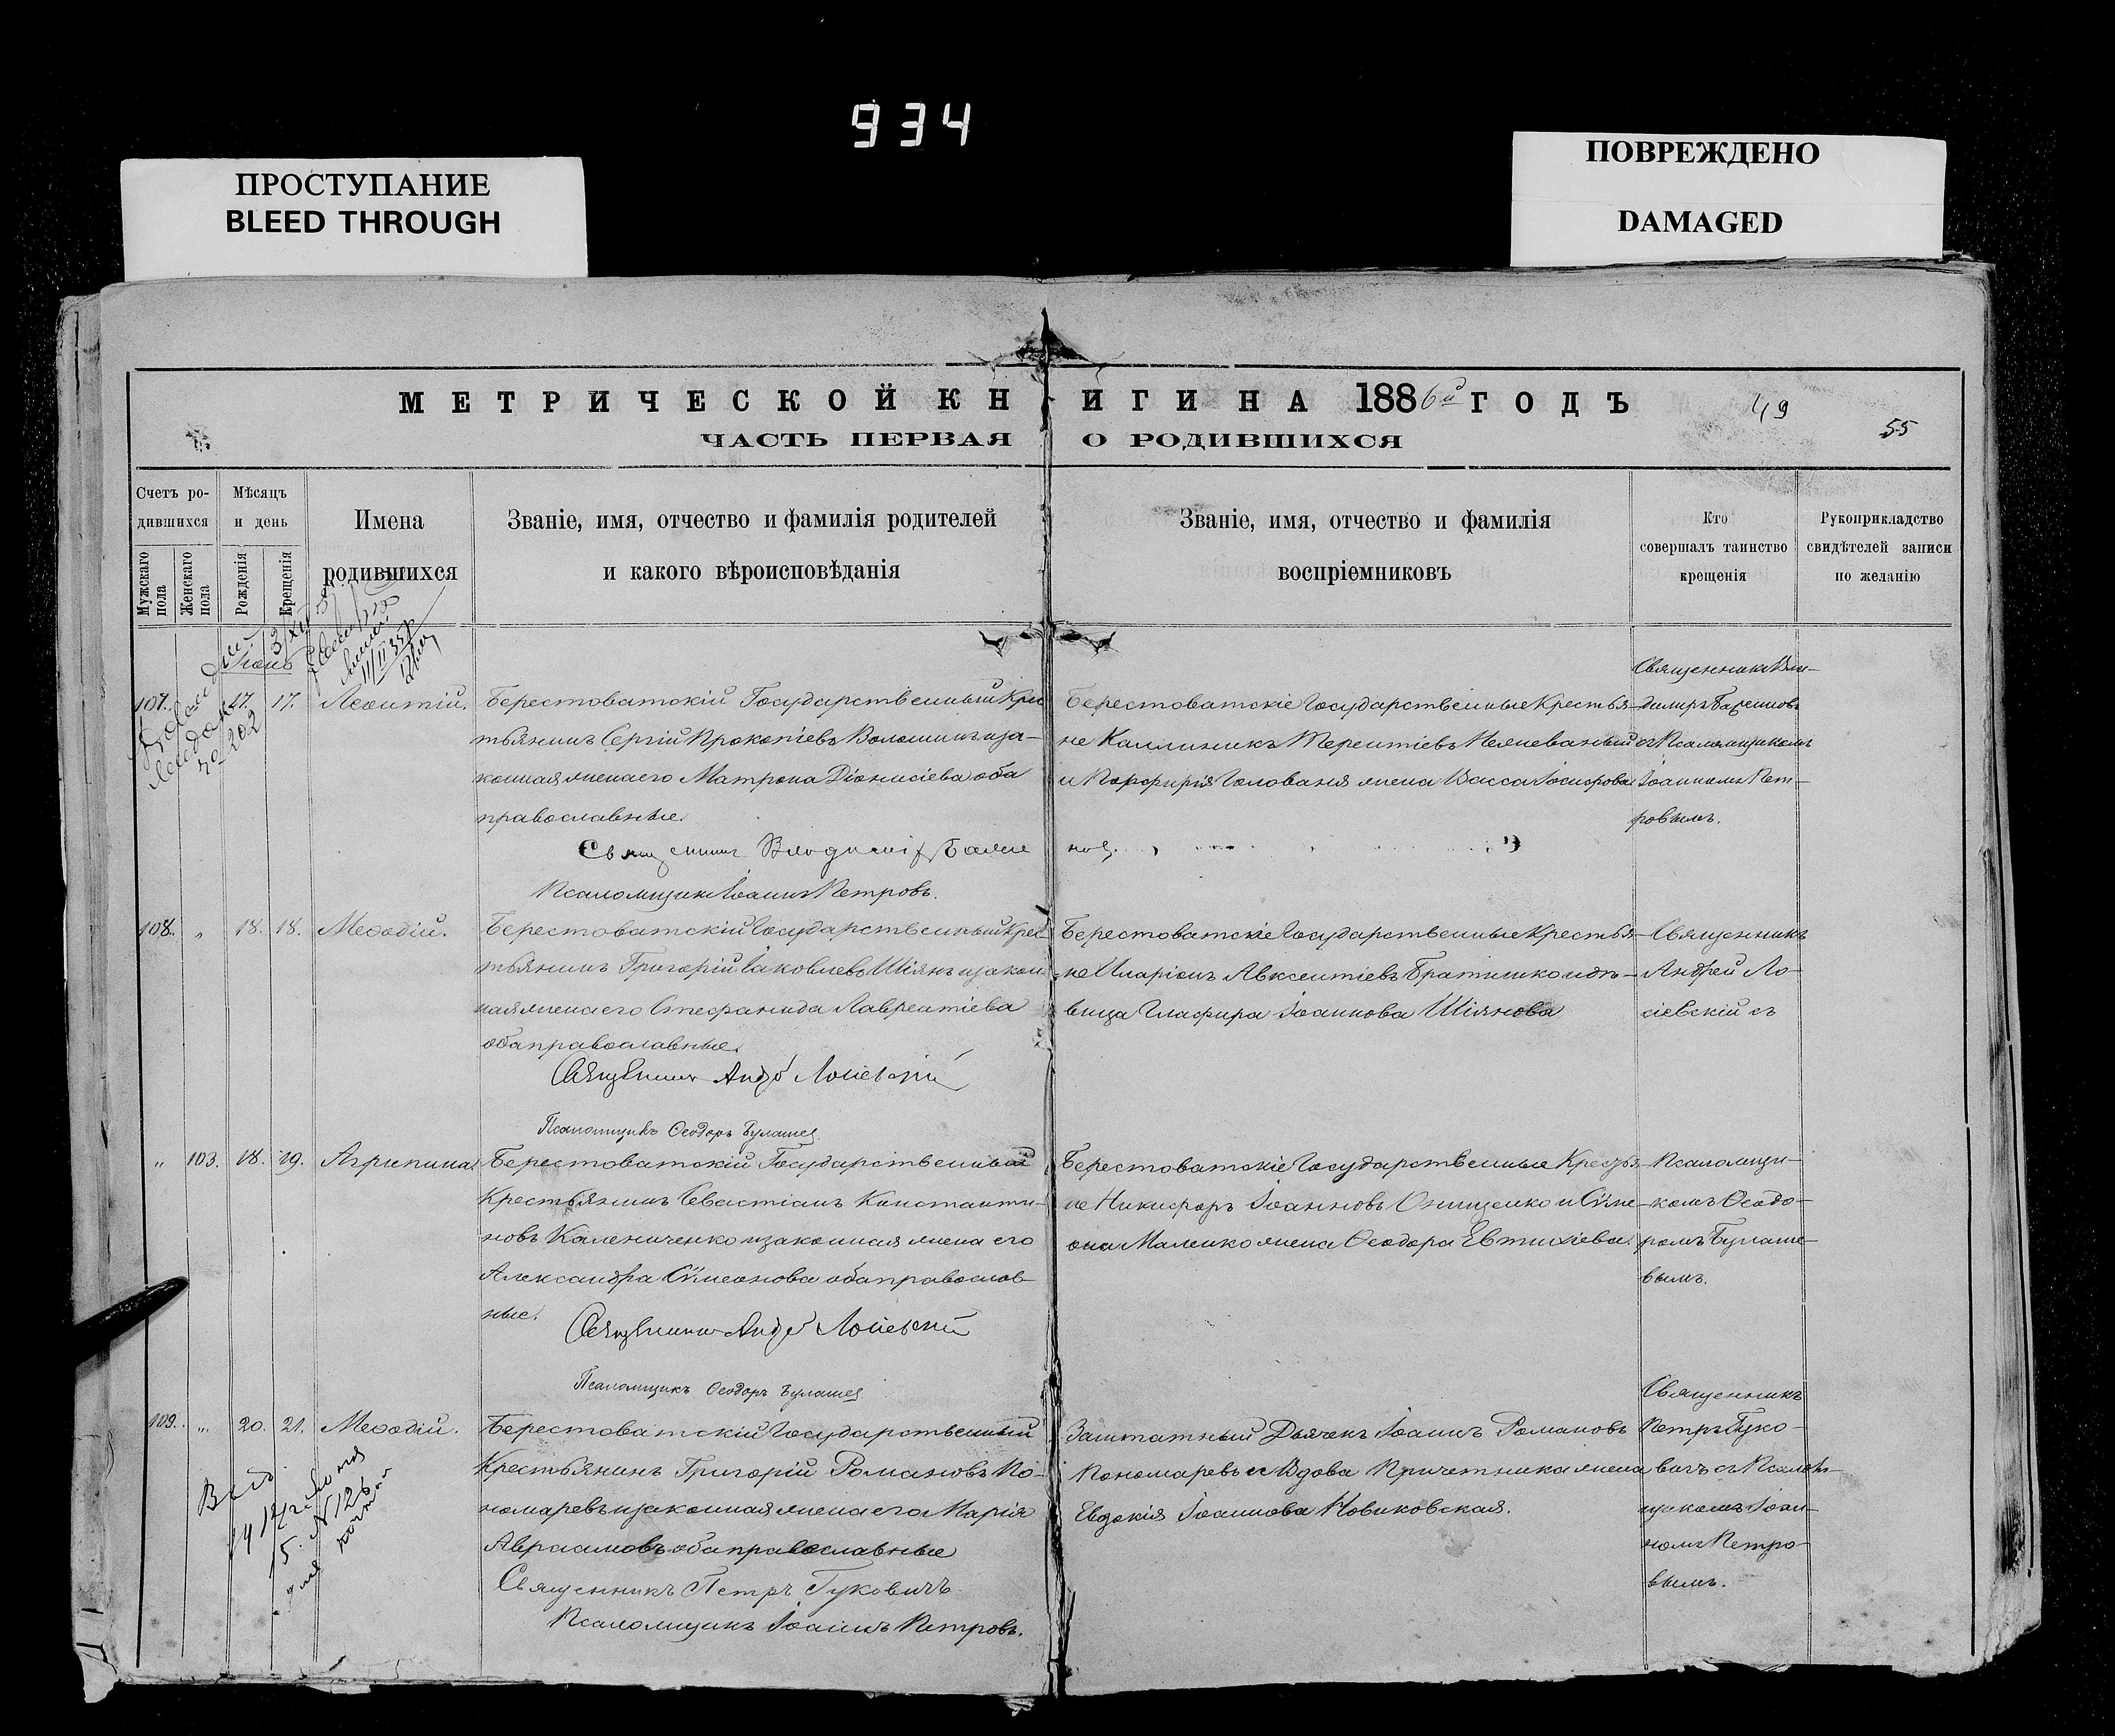 934
ПРОСТУПАНИЕ
BLEED THROUGH
ПОВРЕЖДЕНО
DAMAGED
МЕТРИЧЕСКОЙ КНИГИ НА 1886й ГОДЪ
49
55
ЧАСТЬ ПЕРВАЯ О РОДИВШИХСЯ
Счетъ ро-
дившихся
Мужскаго пола
Женскаго пола
Мѣсяцъ
и день
Рожденія
Крещенія
Имена
родившихся
Званіе, имя, отчество и фамилія родителей
и какого вѣроисповѣданія
Званіе, имя, отчество и фамилія
воспріемниковъ
Кто
совершалъ таинство
крещенія
Рукоприкладство
свидѣтелей записи
по желанію
Іюнь
107. 17. 17. Леонтій.
Берестоватскій Государственный Крес
тьянинъ Сергій Прокопіевъ Волошинъ иза-
конная жена его Матрона Діонисіева оба
православные.
Священникъ Владиміръ Баженов
Псаломщикъ Іоаннъ Петровъ.
Берестоватскіе Государственные Крестья-
не Каллиникъ Терентіевъ
и Порфирія Голованя жена Васса Іосифова
Священникъ Вла-
диміръ Баженовъ
съ Псаломщикомъ
Іоанномъ Пет-
ровымъ.
108. " 18. 18. Меѳодій.
Берестоватскій Государственный Крес-
тьянинъ Григорій Іаковлевъ Шіянъ изакон-
ная жена его Стефанида Лаврентіева
оба православные.
Священникъ Андрей Лосіевскій
Псаломщикъ Ѳеодоръ Булашев
Берестоватскіе Государственные Крестья-
не Иларіонъ Авксентіевъ Братишко и дѣ-
вица Глафира Іоаннова Шіянова
Священникъ
Андрей Ло-
сіевскій съ
" 103. 18. 19. Агрипина.
Берестоватскій Государственный
Крестьянинъ Севастіанъ Константи-
новъ Калениченко изаконная жена его
Александра Сѵмеонова оба православ-
ные.
Священникъ Андрей Лосіевскій
Псаломщикъ Ѳеодоръ Булашев
Берестоватскіе Государственные Крестья-
не Никифоръ Іоанновъ Онищенко и Сѵме-
она Маленко жена Ѳеодора Евтихіева.
Псаломщи-
комъ Ѳеодо-
ромъ Булаше-
вымъ.
109. " 20. 21. Меѳодій.
Берестоватскій Государственный
Крестьянинъ Григорій Романовъ По-
номаревъ изаконная жена его Марія
Авраамовъ оба православные
Священникъ Петръ Гуковичъ.
Псаломщикъ Іоаннъ Петровъ.
Заштатный Дьячекъ Іоаннъ Романовъ
Пономаревъ и Вдова Причетника жена
Евдокія Іоаннова Новиковская.
Священникъ
Петръ Гуко-
вичъ съ Псалом-
щикомъ Іоан-
номъ Петро-
вымъ.